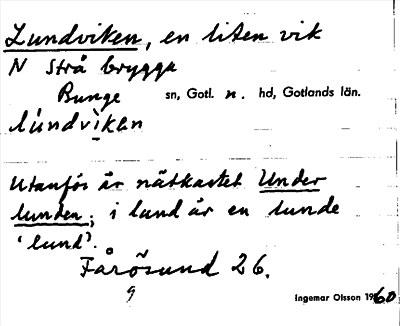 Lundviken, en liten vik
N Strå brygga
Bunge sn, Gotl. n. hd, Gotlands län.
lúndvìkan
Utanför är nätkastet Under
lunden; i land är en lunde
'lund'.
Fårösund 26.
9
Ingemar Olsson 1960